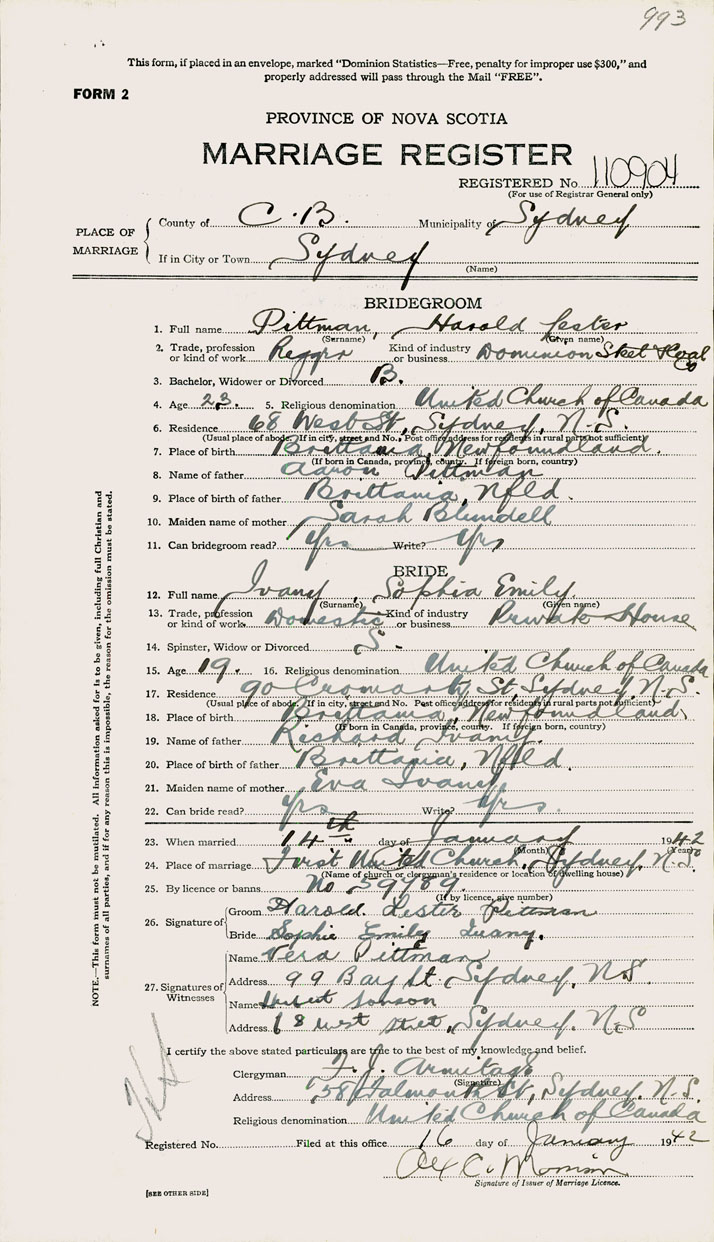 993
This form, if placed in an envelope, marked "Dominion Statistics—Free, penalty for improper use $300," and
properly addressed will pass through the Mail "FREE".
FORM 2
PROVINCE OF NOVA SCOTIA
MARRIAGE REGISTER
REGISTERED No. 110904
(For use of Registrar General only)
PLACE OF MARRIAGE
County of C.B. Municipality of Sydney
If in City or Town Sydney
(Name)
BRIDEGROOM
1. Full name Pittman, Harold Lester
(Surname) (Given name)
2. Trade, profession or kind of work Rigger Kind of industry or business Dominion Steel & Coal Co
3. Bachelor, Widower or Divorced B.
4. Age 23. 5. Religious denomination United Church of Canada
6. Residence 68 West St, Sydney, N.S.
(Usual place of abode. If in city, street and No. Post office address for residents in rural parts not sufficient)
7. Place of birth Brittania, Newfoundland.
(If born in Canada, province, county. If foreign born, country)
8. Name of father Aaron Pittman
9. Place of birth of father Brittania, Nfld.
10. Maiden name of mother Sarah Blundell
11. Can bridegroom read? Yes Write? Yes
BRIDE
12. Full name Ivany, Sophia Emily
(Surname) (Given name)
13. Trade, profession or kind of work Domestic Kind of industry or business Private House
14. Spinster, Widow or Divorced S.
15. Age 19. 16. Religious denomination United Church of Canada
17. Residence 90 Cromarty St, Sydney N.S.
(Usual place of abode. If in city, street and No. Post office address for residents in rural parts not sufficient)
18. Place of birth Brittania, Newfoundland,
(If born in Canada, province, county. If foreign born, country)
19. Name of father Richard Ivany.
20. Place of birth of father Brittania, Nfld.
21. Maiden name of mother Eva Ivany
22. Can bride read? Yes Write? Yes.
23. When married 14th day of January 1942
(Month) (Year)
24. Place of marriage First United Church, Sydney, N.S.
(Name of church or clergyman's residence or location of dwelling house)
25. By licence or banns No. 59789.
(If by licence, give number)
26. Signature of
Groom Harold. Lester Pittman
Bride Sophie Emily Ivany.
27. Signatures of Witnesses
Name Vera Pittman
Address 99 Bay St, Sydney, NS
Name
Address 68 West Street, Sydney, N.S
I certify the above stated particulars are true to the best of my knowledge and belief.
Clergyman F. J. Armitage
(Signature)
Address 58 Falmouth St, Sydney, N.S.
Religious denomination United Church of Canada
Registered No. Filed at this office 16 day of January 1942
Alex C. Morrison
Signature of Issuer of Marriage Licence.
[SEE OTHER SIDE]
NOTE.—This form must not be mutilated. All information asked for is to be given, including full Christian and
surnames of all parties, and if for any reason this is impossible, the reason for the omission must be stated.